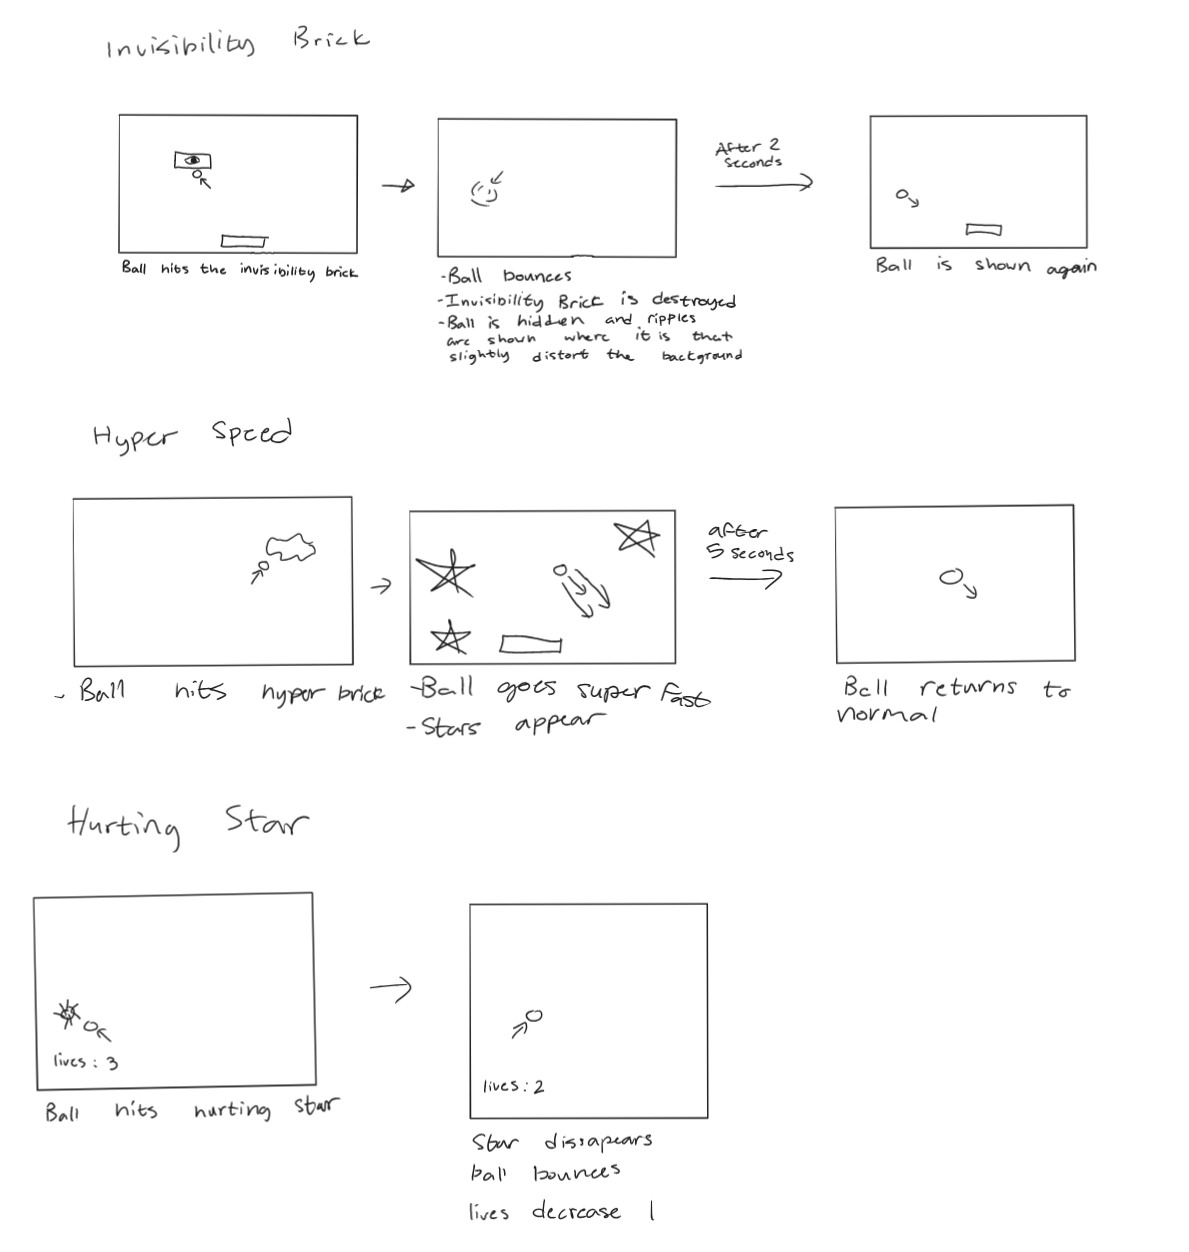 Invisibility Brick
After 2
seconds
Ball hits the invisibility brick
-Ball bounces
-Invisibility Brick is destroyed
-Ball is hidden and ripples
are shown where it is that
slightly distort the background
Ball is shown again
Hyper Speed
after
5 seconds
- Ball hits hyper brick
-Ball goes super fast
-Stars appear
Ball returns to
normal
Hurting Star
lives: 3
Ball hits hurting star
lives: 2
Star dissapears
ball bounces
lives decrease 1